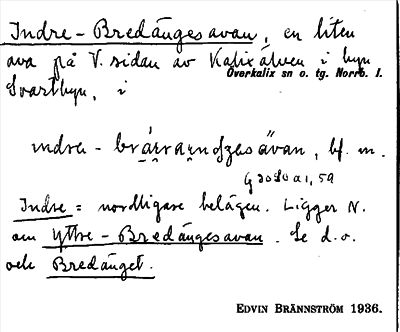 Indre-Bredängesavan, en liten
ava på V. sidan av Kalixälven i byn
Överkalix sn o. tg. Norrb. l.
Svartbyn, i
indre-
, bf. m.
Indre = nordligare belägen. Ligger N.
om Yttre-Bredängesavan. Se d.o.
och Bredänget.
EDVIN BRÄNNSTRÖM 1936.